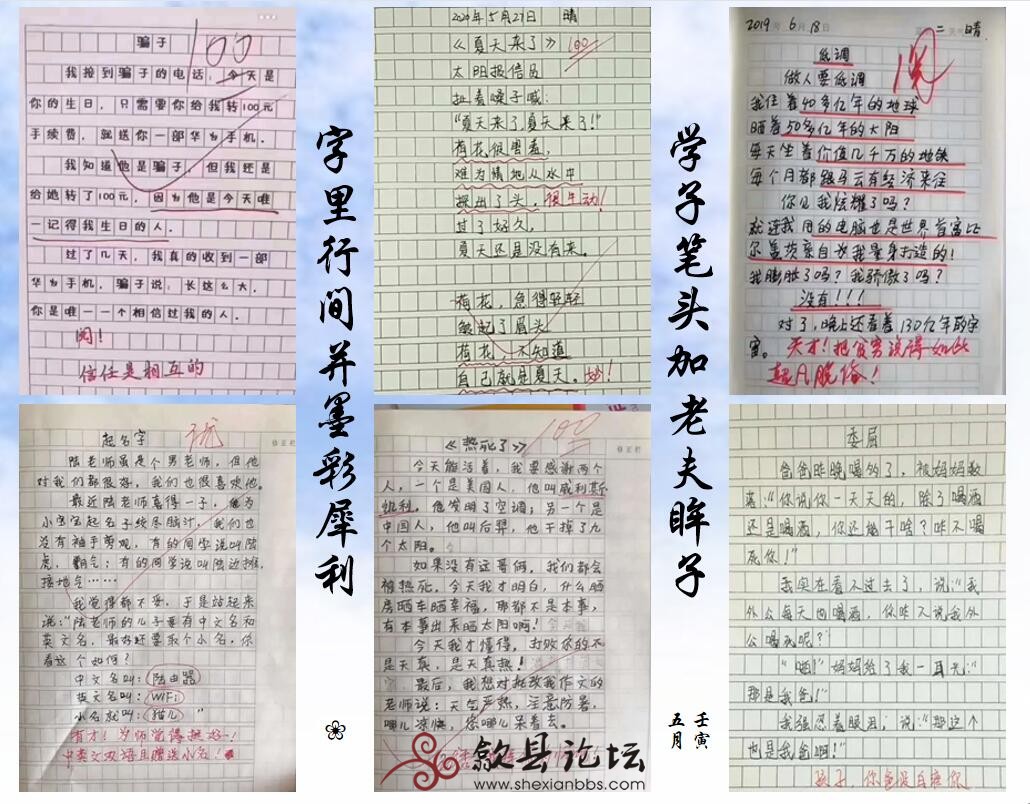 骗子
100
我接到骗子的电话，今天是
你的生日，只需要你给我转100元
手续费，就送你一部华为手机。
我知道他是骗子，但我还是
给她转了100元，因为他是今天唯
一记得我生日的人。
过了几天，我真的收到一部
华为手机，骗子说：长这么大，
你是唯一一个相信过我的人。
阅！
信任是相互的
2020年5月27日 晴
《夏天来了》
100
太阳报信员
扯着嗓子喊：
“夏天来了，夏天来了！”
荷花很害羞，
难为情地从水中
探出了头，很生动！
过了好久，
夏天还是没有来。
荷花，急得轻轻
皱起了眉头
荷花，不知道
自己就是夏天。妙！
2019年6月18日 二 晴
低调
做人要低调
我住着40多亿年的地球
晒着50多亿年的太阳
每天坐着价值几千万的地铁
每个月都跟马云有经济来往
你见我炫耀了吗？
就连我用的电脑也是世界首富比
尔盖茨亲自为我量身打造的！
我膨胀了吗？我骄傲了吗？
没有！！！
对了，晚上还看着130亿年的宇
宙。天才！把贫穷说得如此
超凡脱俗！
字里行间并墨彩犀利
❀
学子笔头加老夫眸子
壬寅
五月
起名字
陆老师虽是个男老师，但他
对我们都很好，我们也很喜欢他。
最近陆老师喜得一子，他为
小宝宝起名子绞尽脑汁，我们也
没有袖手旁观，有的同学说叫陆
虎，霸气；有的同学说叫陆边摊，
接地气……
我觉得都不妥，于是站起来
说：“陆老师的儿子要有中文名和
英文名，最好还要取个小名，你
看这个如何？
中文名叫：陆由器
英文名叫：WiFi
小名就叫：猫儿”
有才！岁师觉得挺好！
中英文双语且赠送小名！
《热死了》
100
今天能活着，我要感谢两个
人，一个是美国人，他叫威利斯
凯利。他发明了空调；另一个是
中国人，他叫后羿，他干掉了九
个太阳。
如果没有这哥俩，我们都会
被热死，今天我才明白，什么晒
房晒车晒幸福，那都不是本事，
有本事出来晒太阳啊！
今天我才懂得，打败你的不
是天真，是天真热！
最后，我想对批改我作文的
老师说：天气严热，注意防暑，
哪儿凉快，您哪儿呆着去。
委屈
爸爸昨晚喝的了，被妈妈数
落：“你说你一天天的，除了喝酒
还是喝酒，你还能干啥？咋不喝
死你！”
我实在看不过去了，说：“我
外公每天也喝酒，你咋不说我外
公喝死呢？”
“啪！”妈妈给了我一耳光：“
那是我爸！”
我强忍着眼泪，说：“那这个
也是我爸啊！”
孩子，你爸没白疼你
歙县论坛
www.shexianbbs.com